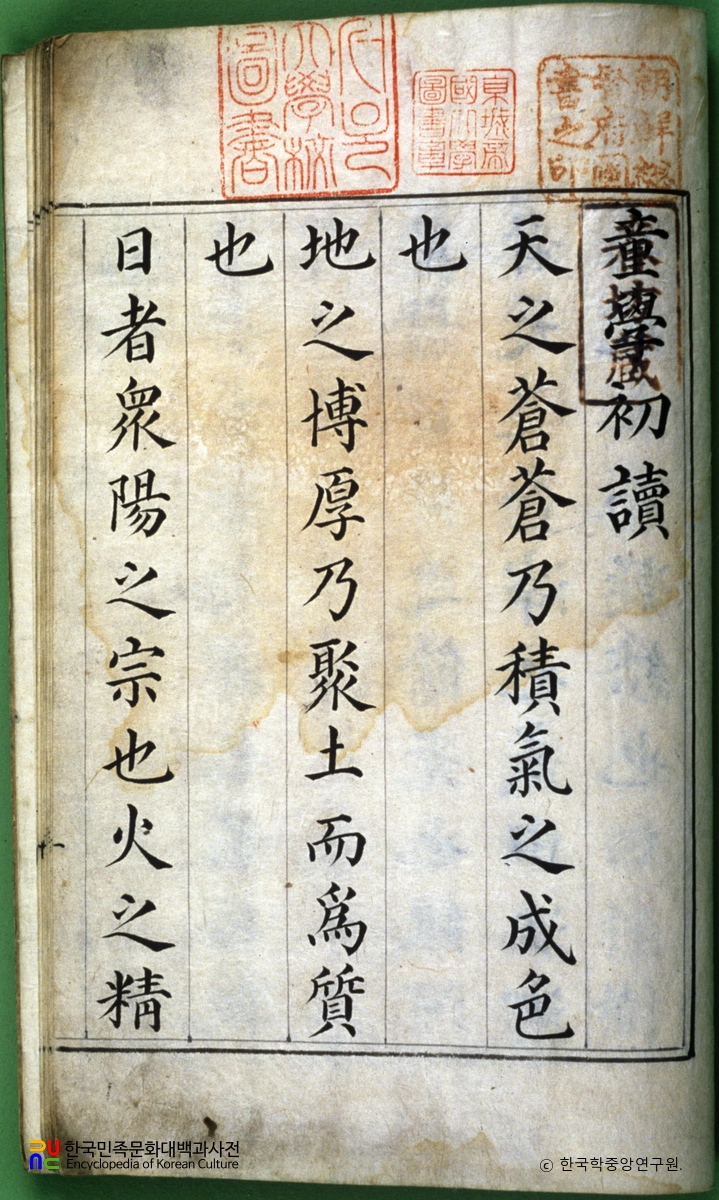 朝鮮總督府圖書之印
京城帝國大學圖書章
서울大學校圖書
童學初讀
天之蒼蒼乃積氣之成色
也
地之博厚乃聚土而爲質
也
日者衆陽之宗也火之精
한국민족문화대백과사전
Encyclopedia of Korean Culture
ⓒ 한국학중앙연구원.